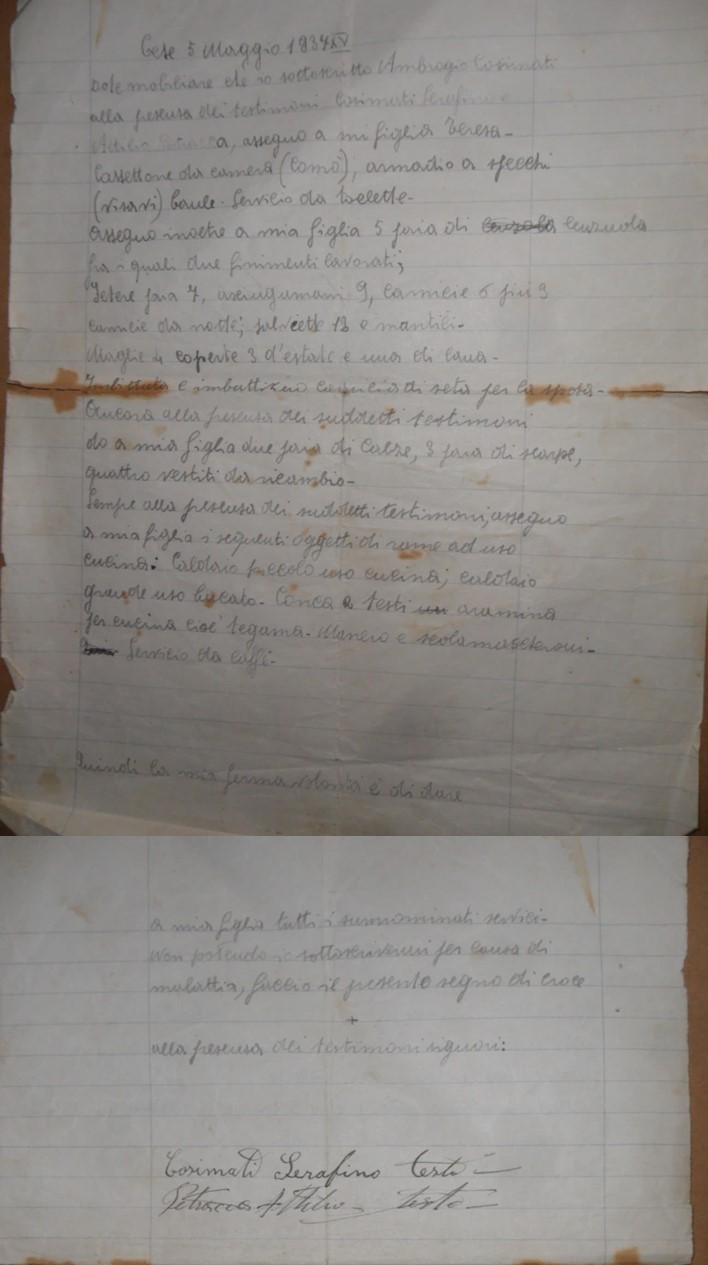 Cese 5 Maggio 1937 XV
Dote mobiliare che io sottoscritto Ambrogio Cosimati
alla presensa dei testimoni Cosimati Serafino e
Attilio Petracca, assegno a mi figlia Teresa-
Cassettone da camera (Comò), armadio a specchi
(visavi) baule. Servicio da toelette-
Assegno inoltre a mia figlia 5 paia di lenzuola
fra i quali due finimenti lavorati;
Federe paia 7, asciugamani 9, camicie 6 più 3
camicie da notte; salviette 13 e mantili-
Maglie 4 coperte 3 d'estate e una di lana-
Imbottita e camicia di seta per la sposa-
Ancora alla presensa dei suddetti testimoni
do a mia figlia due paia di calze, 3 paia di scarpe,
quattro vestiti da ricambio-
Sempe alla presensa dei suddetti testimoni, assegno
a mia figlia i seguenti oggetti di rame ad uso
cucina: Caldaio piccolo uso cucina; caldaio
grande uso bucato- Conca e testi
per cucina cioè tegama- Manero e scolamaccheroni-
Servicio da caffè-
Quindi la mia ferma volontà è di dare
a mia figlia tutti i sunnominati servici-
Non potendo io sottoscrivermi per causa di
malattia, faccio il presente segno di croce
+
alla presensa dei testimoni signori:
Cosimati Serafino teste
Petracca Attilio - teste